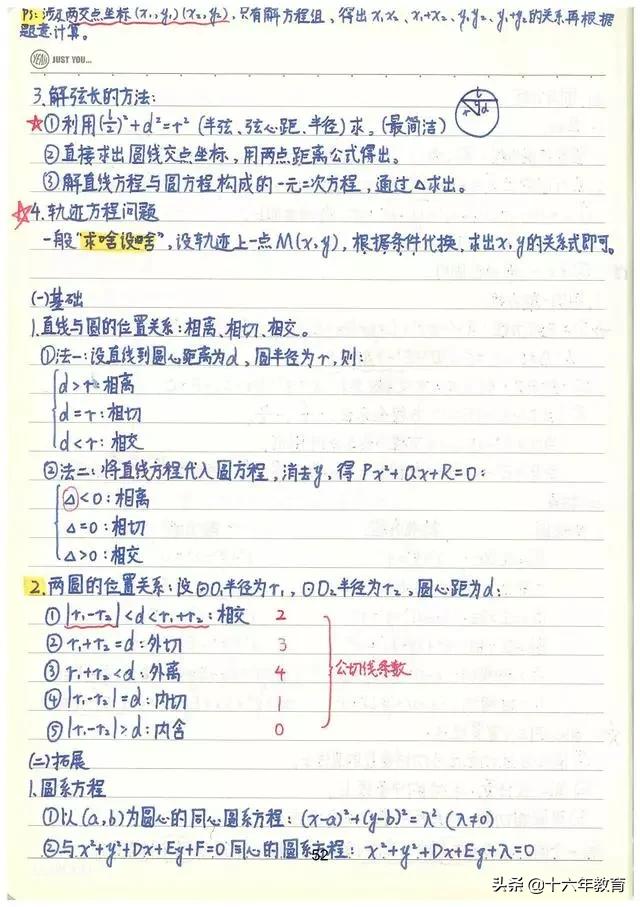 PS: 涉及两交点坐标(x₁,y₁)(x₂,y₂), 只有解方程组, 得出x₁x₂、x₁+x₂、y₁y₂、y₁+y₂的关系再根据
题意计算。
YEAH JUST YOU...
3. 解弦长的方法:
☆①利用(l/2)²+d²=r² (半弦、弦心距、半径)求。(最简洁)
l r d
②直接求出圆线交点坐标, 用两点距离公式得出。
③解直线方程与圆方程构成的一元二次方程, 通过△求出。
☆4. 轨迹方程问题
一般“求啥设啥”, 设轨迹上一点M(x,y), 根据条件代换, 求出x,y的关系式即可。
(一)基础
1. 直线与圆的位置关系: 相离、相切、相交。
①法一: 设直线到圆心距离为d, 圆半径为r, 则:
d>r: 相离
d=r: 相切
d<r: 相交
②法二: 将直线方程代入圆方程, 消去y, 得Px²+Qx+R=0:
△<0: 相离
△=0: 相切
△>0: 相交
2. 两圆的位置关系: 设⊙O₁半径为r₁, ⊙O₂半径为r₂, 圆心距为d:
①|r₁-r₂|<d<r₁+r₂: 相交 2
②r₁+r₂=d: 外切 3
③r₁+r₂<d: 外离 4 公切线条数
④|r₁-r₂|=d: 内切 1
⑤|r₁-r₂|>d: 内含 0
(二)拓展
1. 圆系方程
①以(a,b)为圆心的同心圆系方程: (x-a)²+(y-b)²=λ² (λ≠0)
②与x²+y²+Dx+Ey+F=0同心的圆系方程: x²+y²+Dx+Ey+λ=0
52
头条 @十六年教育